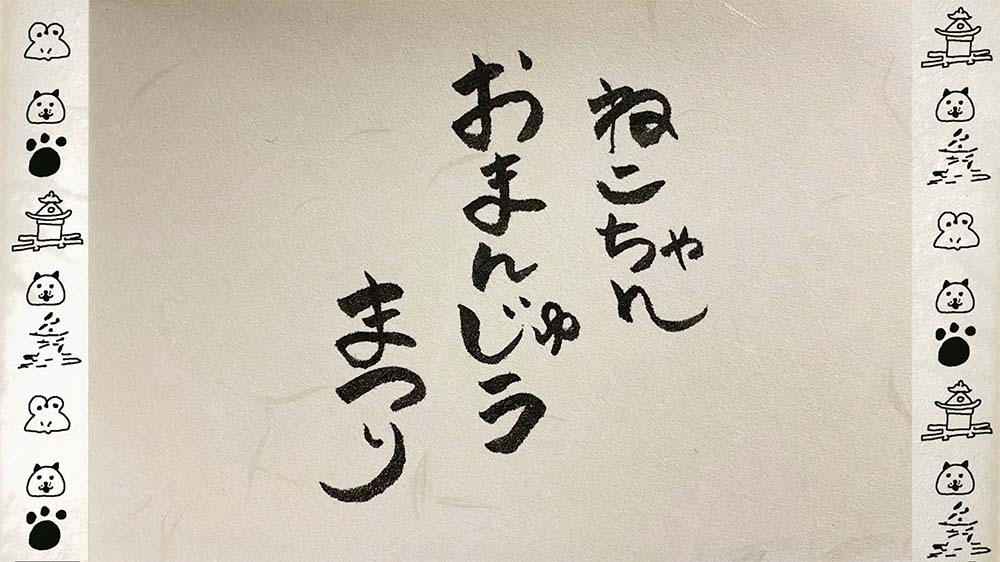 ねこちゃん
おまんじゅう
まつり